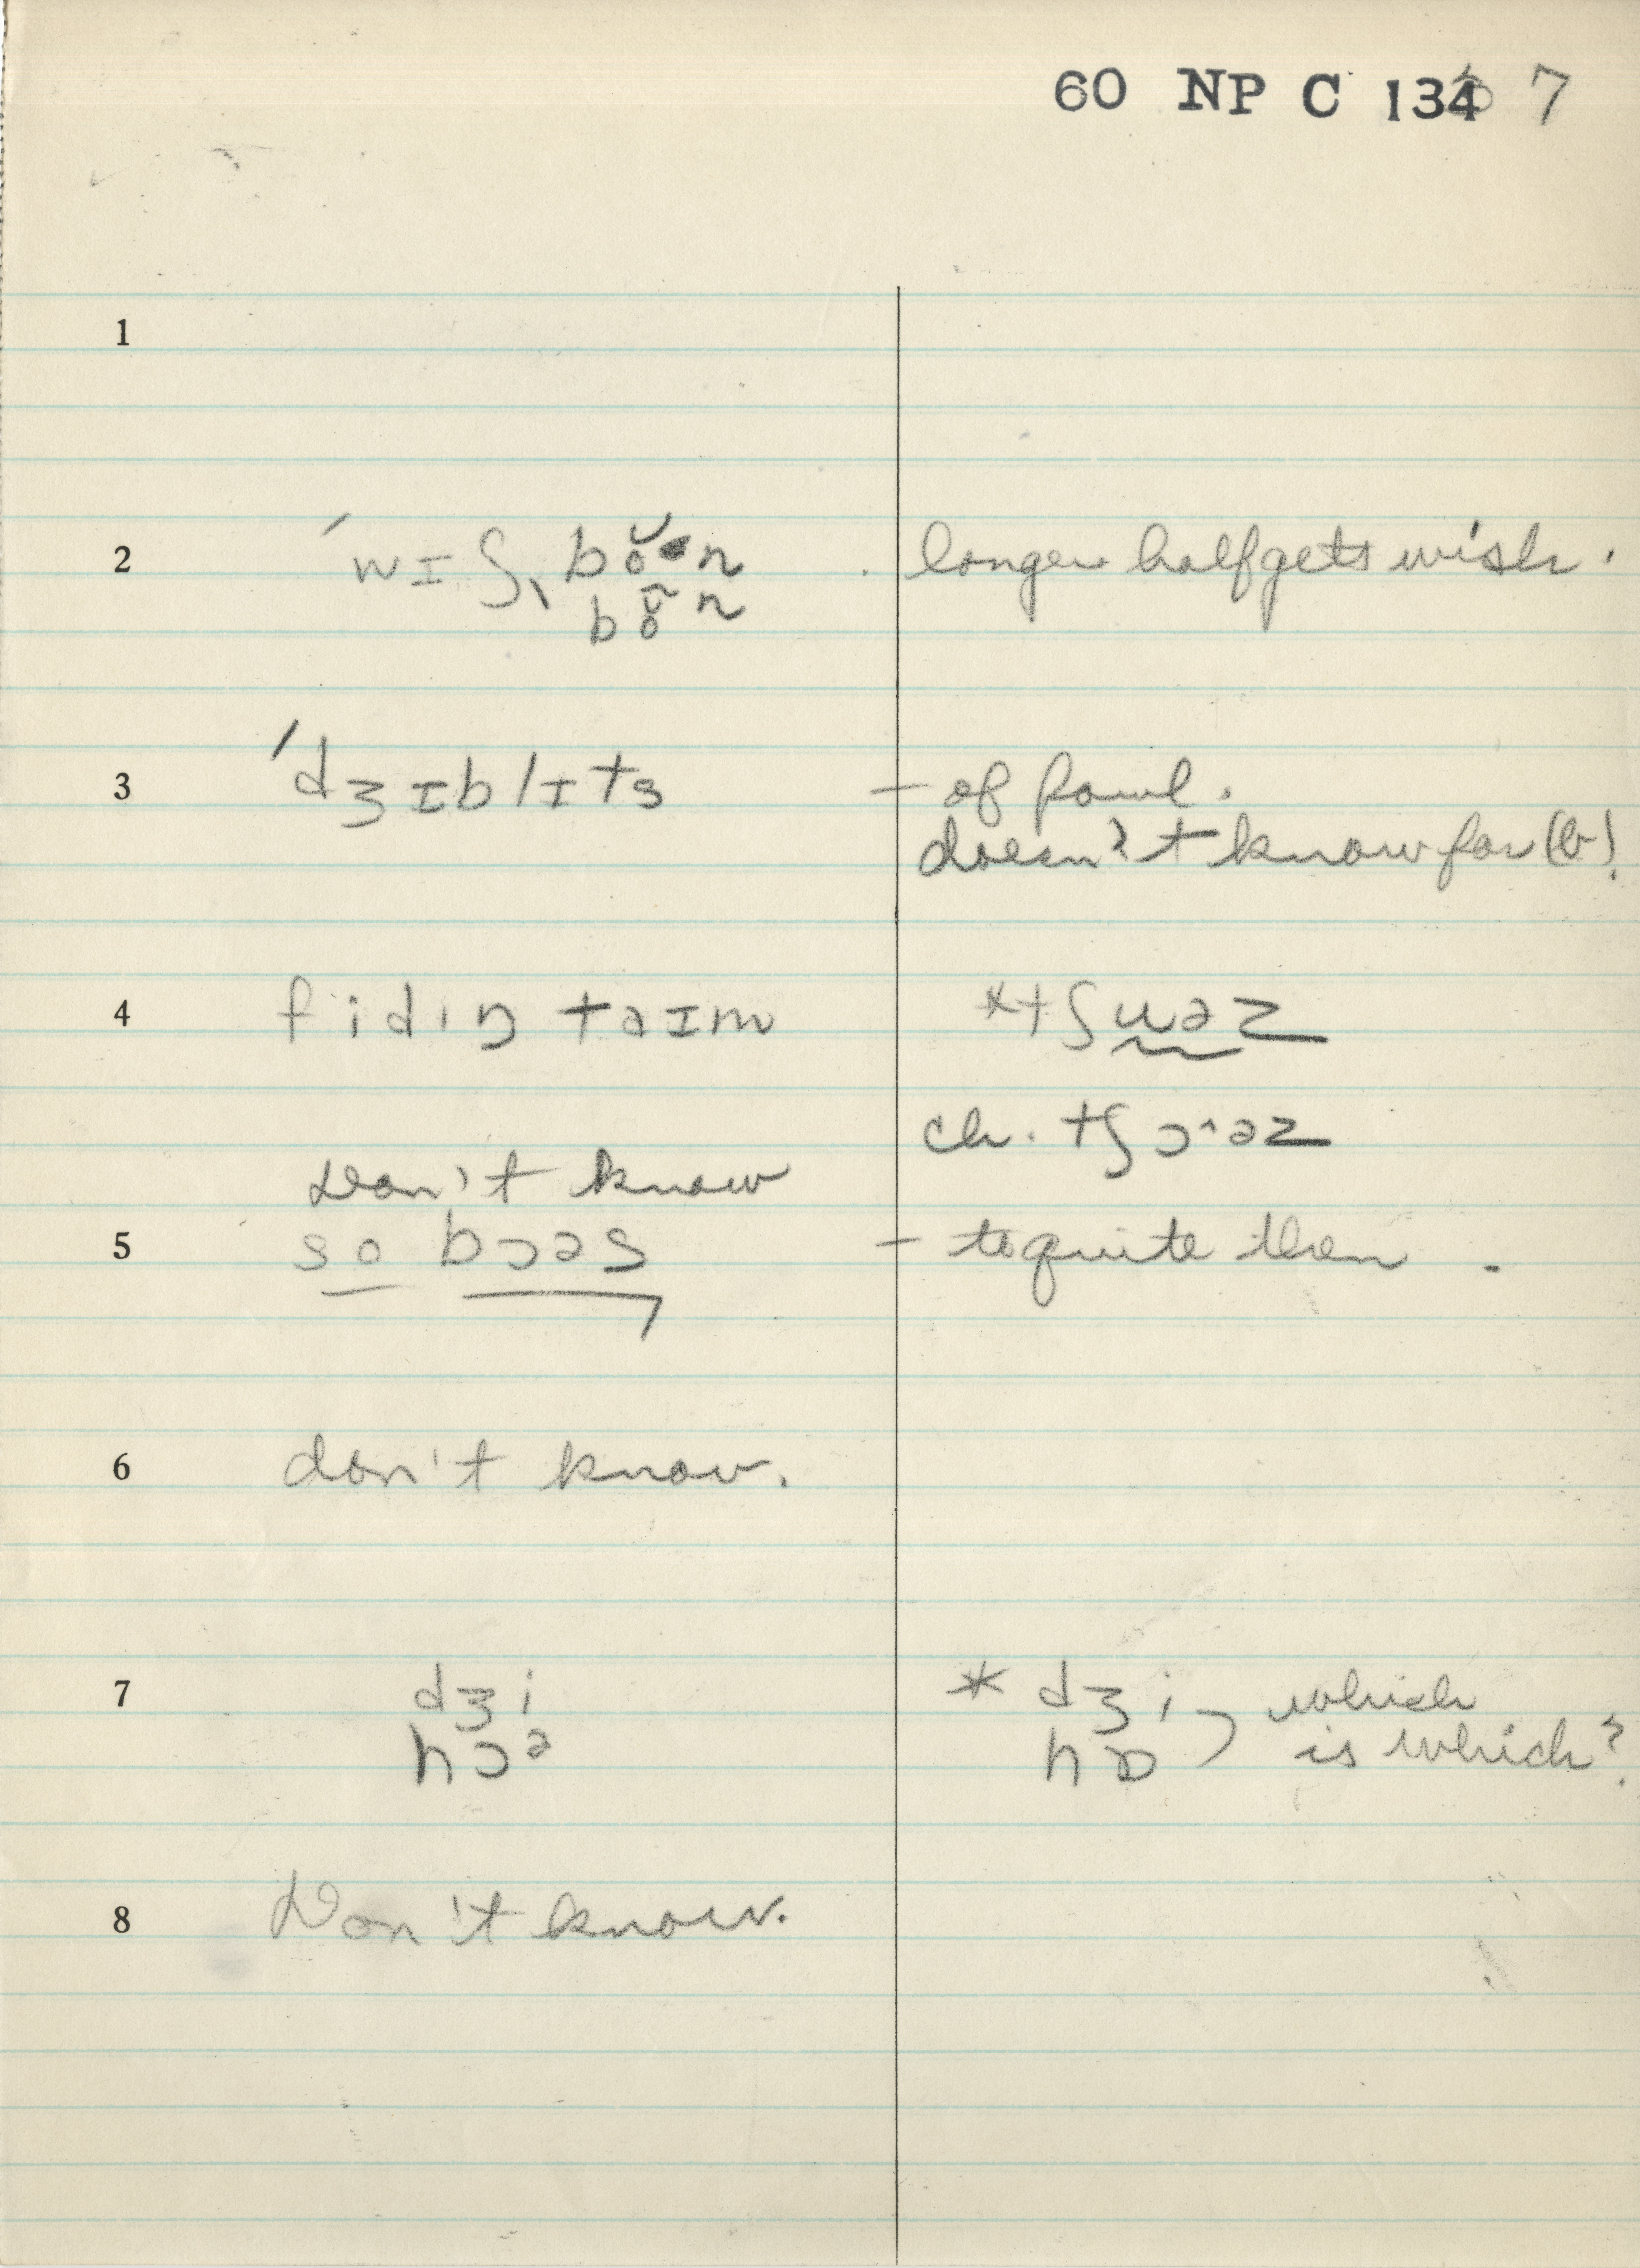 60 NP C 134 7
1
2 ˈwɪʃˌ bŏn longer half gets wish.
bŏn
3 ˈdʒɪblɪts – of fowl.
doesn't know for (b).
4 fidɪŋ taɪm *tʃuəz
ch. tʃɔ^əz
Don't know
5 so bɔəs – to quite then.
6 don't know.
7 dʒi * dʒi which
hɔə hɒ is which?
8 Don't know.